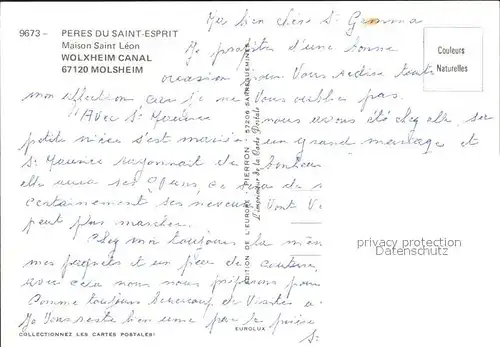 9673 - PERES DU SAINT-ESPRIT
Maison Saint Léon
WOLXHEIM CANAL
67120 MOLSHEIM
Couleurs
Naturelles
bien chère Sr Gemma
Je profite d'une bonne
occasion pour Vous redire toute
mon affection, car je ne Vous oublie pas.
Avec Sr Maurice nous avons été chez elle, sa
petite nièce s'est mariée un grand mariage et
Sr Maurice rayonnait de bonheur
elle aura ses ce
certainement ses neveux Vont V
peut plus marcher.
Chez moi toujours la mêm
mes et un peu de couture
avec cela nous nous préparons pour
Comme toujours beaucoup de Visites à
Je Vous reste bien unie par la prière
Sr
EDITION DE L'EUROPE - PIERRON - 57206 SARREGUEMINES
L'imprimeur de la Carte Postale
privacy protection
Datenschutz
COLLECTIONNEZ LES CARTES POSTALES!
EUROLUX